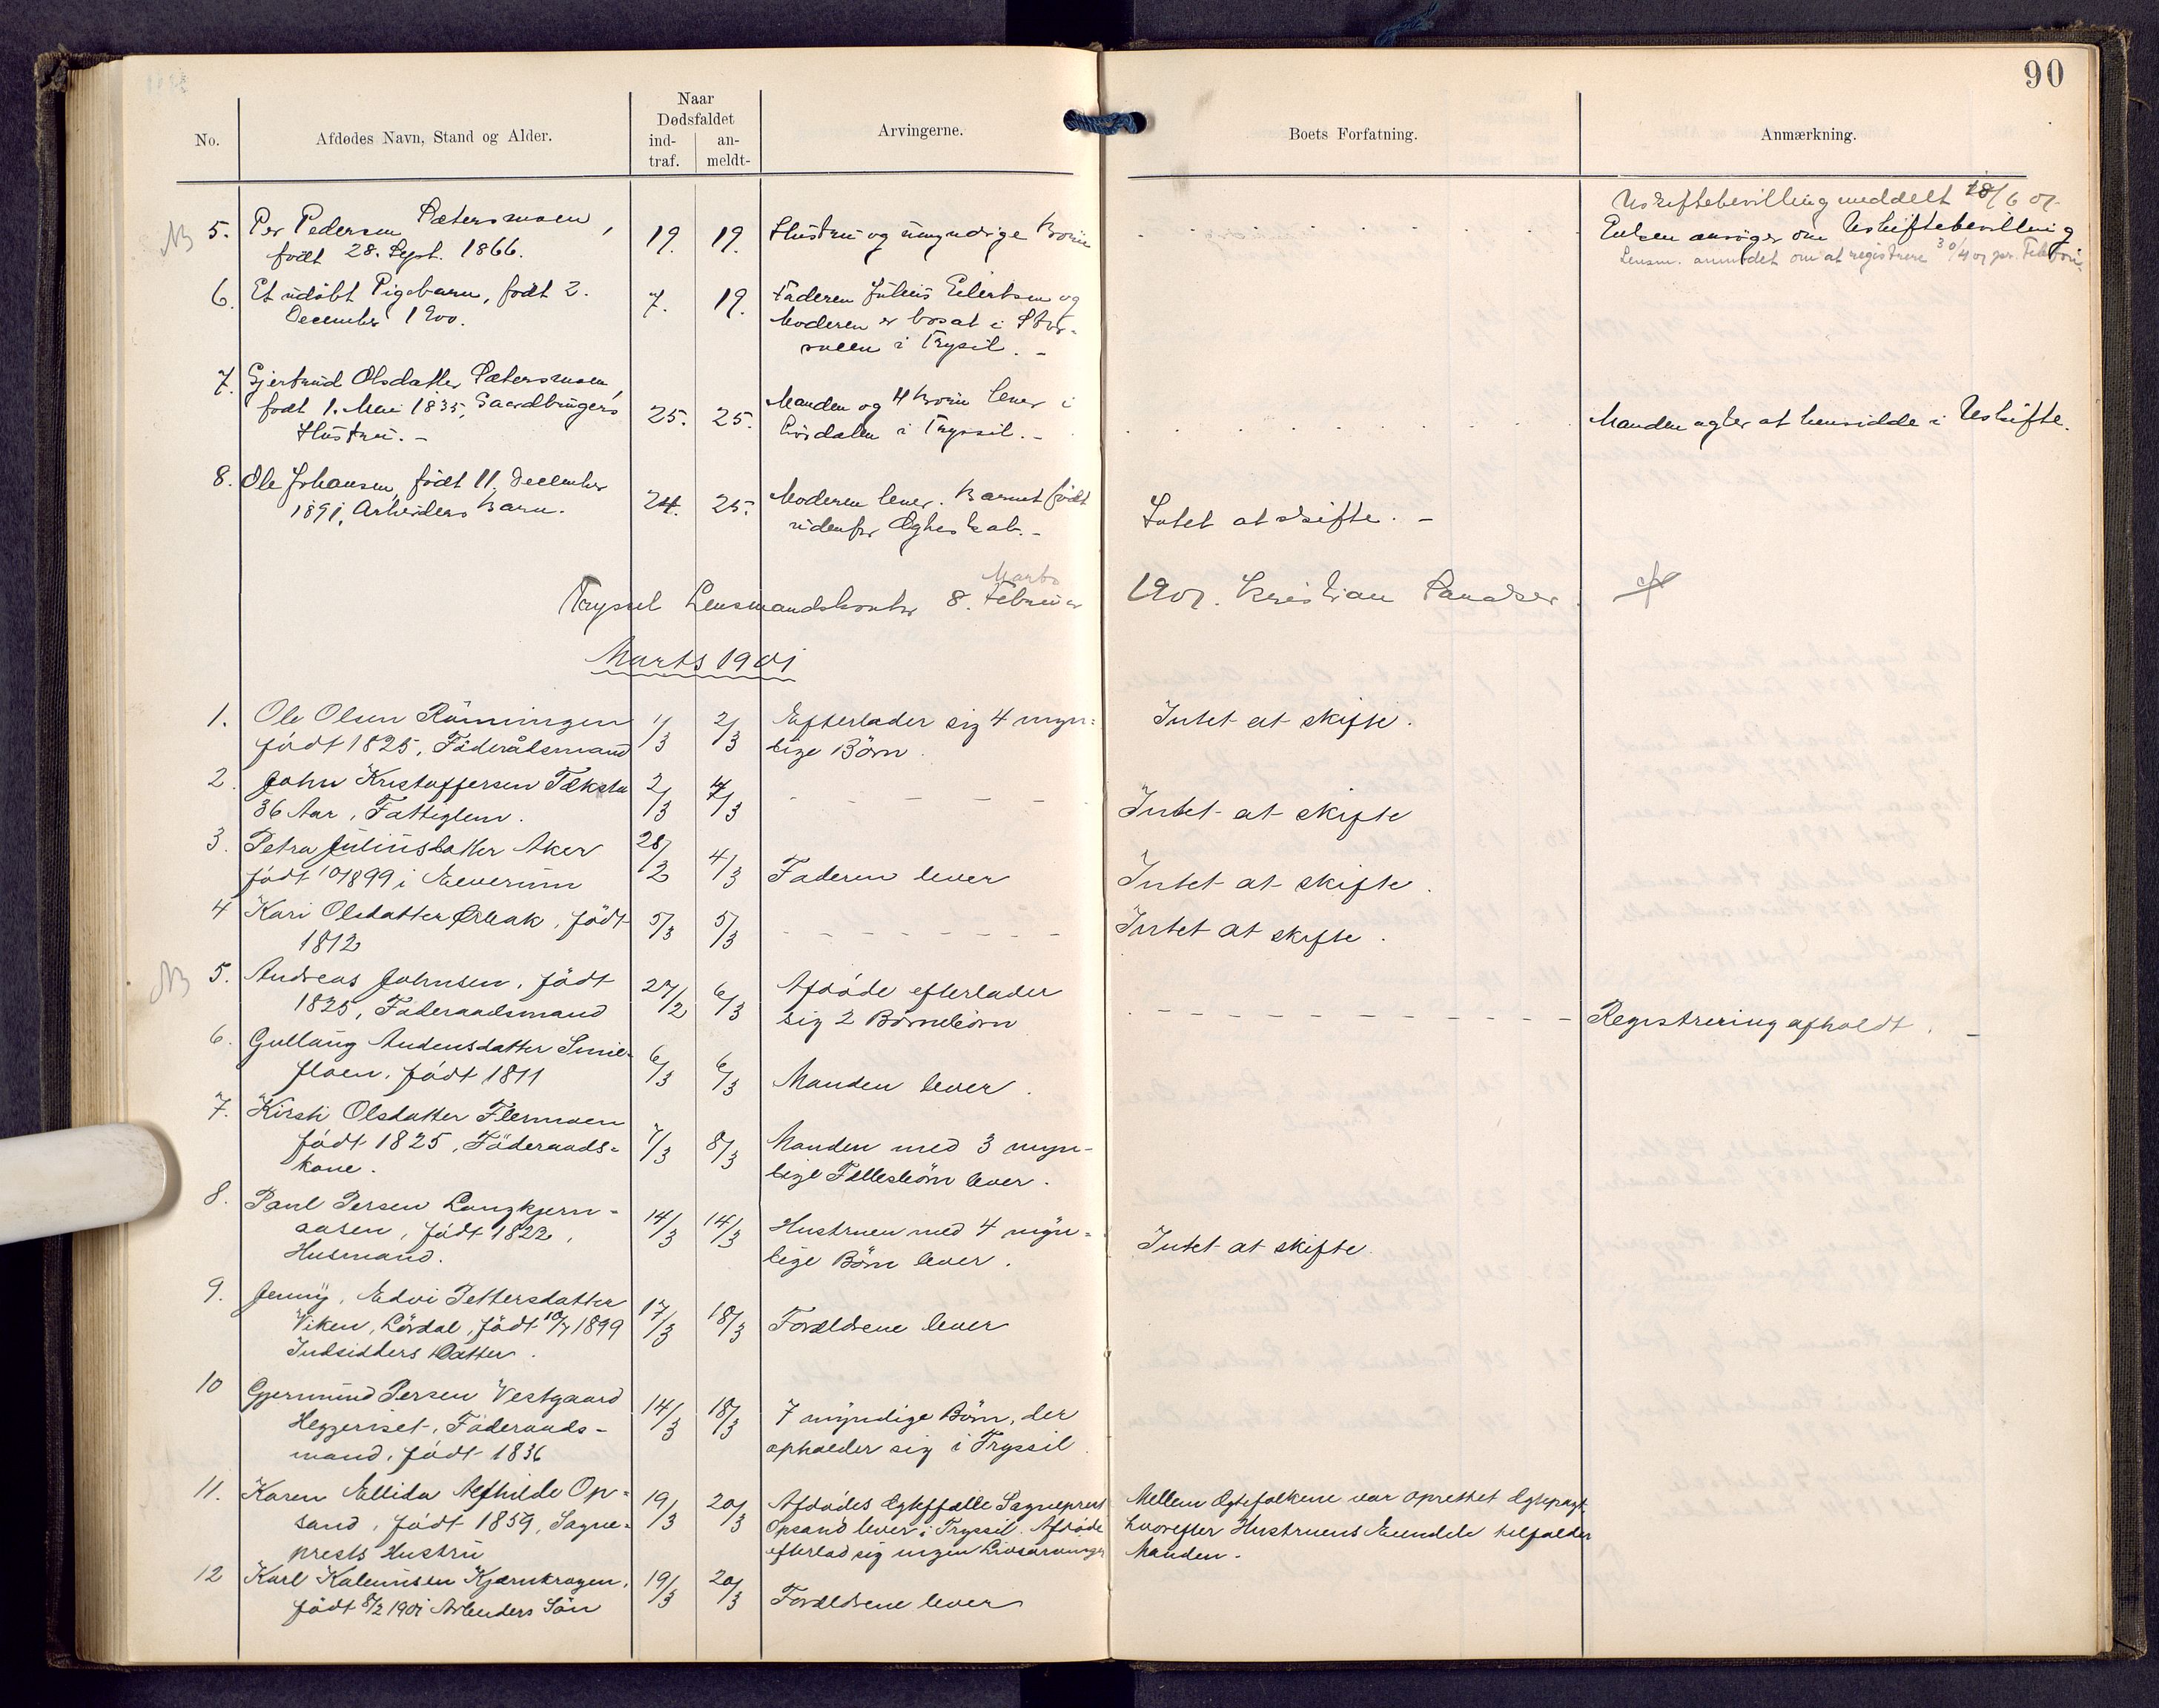 90
No.
Afdødes Navn, Stand og Alder.
Naar
Dødsfaldet
ind-
traf.
an-
meldt-
Arvingerne.
Boets Forfatning.
Anmærkning.
NB 5. Per Pedersen Sætersmoen,
født 28. Sept. 1866.
19. 19. Hustru og umyndige Børn
Uskiftebevilling meddelt 18/6 01.
Enken ansøger om Uskiftebevilling
Lensm. anmodet om at registrere 30/4 01 pr. Telefon.
6. Et udøbt Pigebarn, født 2.
December 1900.
7. 19. Faderen Julius Eilertsen og
Moderen er bosat i Stor-
moen i Trysil. -
7. Gjertrud Olsdatter Sætersmoen,
født 1. Mai 1835, Gaardbrugers
Hustru. -
25. 25. Manden og 4 Børn lever i
Lørdalen i Tryssil. -
Manden agter at hensidde i Uskifte.
8. Ole Johansen, født 11. December
1891, Arbeiders Barn.
24. 25. Moderen lever. Barnet født
udenfor Ægteskab. -
Intet at skifte. -
Marts
Tryssil Lensmandskontor 8. Februar 1901. Kristian
Marts 1901
1. Ole Olsen Rönningen
födt 1825, Föderådsmand
1/3 2/3 Efterlader sig 4 myn-
dige Börn.
Intet at skifte.
2. John Kristoffersen
36 Aar, Fattiglem.
2/3 4/3
Intet at skifte
3. Petra Juliusdatter Aker
födt 10/1899 i Elverum
28/2 4/3 Faderen lever
Intet at skifte.
4 Kari Olsdatter Örbak, födt
1812
5/3 5/3
Intet at skifte.
NB 5. Andreas Johnsen, födt
1825, Föderaadsmand
27/2 6/3 Afdöde efterlader
sig 2 Börnebörn
Registrering afholdt. -
6. Gullaug Audensdatter
floen, födt 1811
6/3 6/3 Manden lever.
7. Kirsti Olsdatter Flermoen
födt 1825, Föderaads-
kone.
7/3 8/3 Manden med 3 myn-
dige Fællesbörn lever.
8. Paul Persen Langkjern-
aasen, födt 1822,
Husmand.
14/3 14/3 Hustruen med 4 myn-
dige Börn lever.
Intet at skifte.
9. Jenny, Edvi Pettersdatter
Viken, Lördal, födt 10/7 1899
Indsidders Datter.
17/3 18/3 Forældrene lever
10 Gjermund Persen Vestgaard
Heggeriset, Föderaads-
mand, födt 1836
14/3 18/3 7 myndige Börn, der
opholder sig i Tryssil.
11. Karen Ellida Mathilde Op-
sand, födt 1859, Sogne-
prests Hustru
19/3 20/3 Afdödes Ægtefælle Sogneprest
Opsand lever i Tryssil. Afdöde
efterlod sig ingen Livsarvinger
Mellem Ægtefolkene var oprettet Ægtepagt,
hvorefter Hustruens Eiendele tilfalder
Manden.
12 Karl Kaleniusen Kjernkrogen,
födt 8/2 1901 Arbeiders Sön
19/3 20/3 Forældrene lever